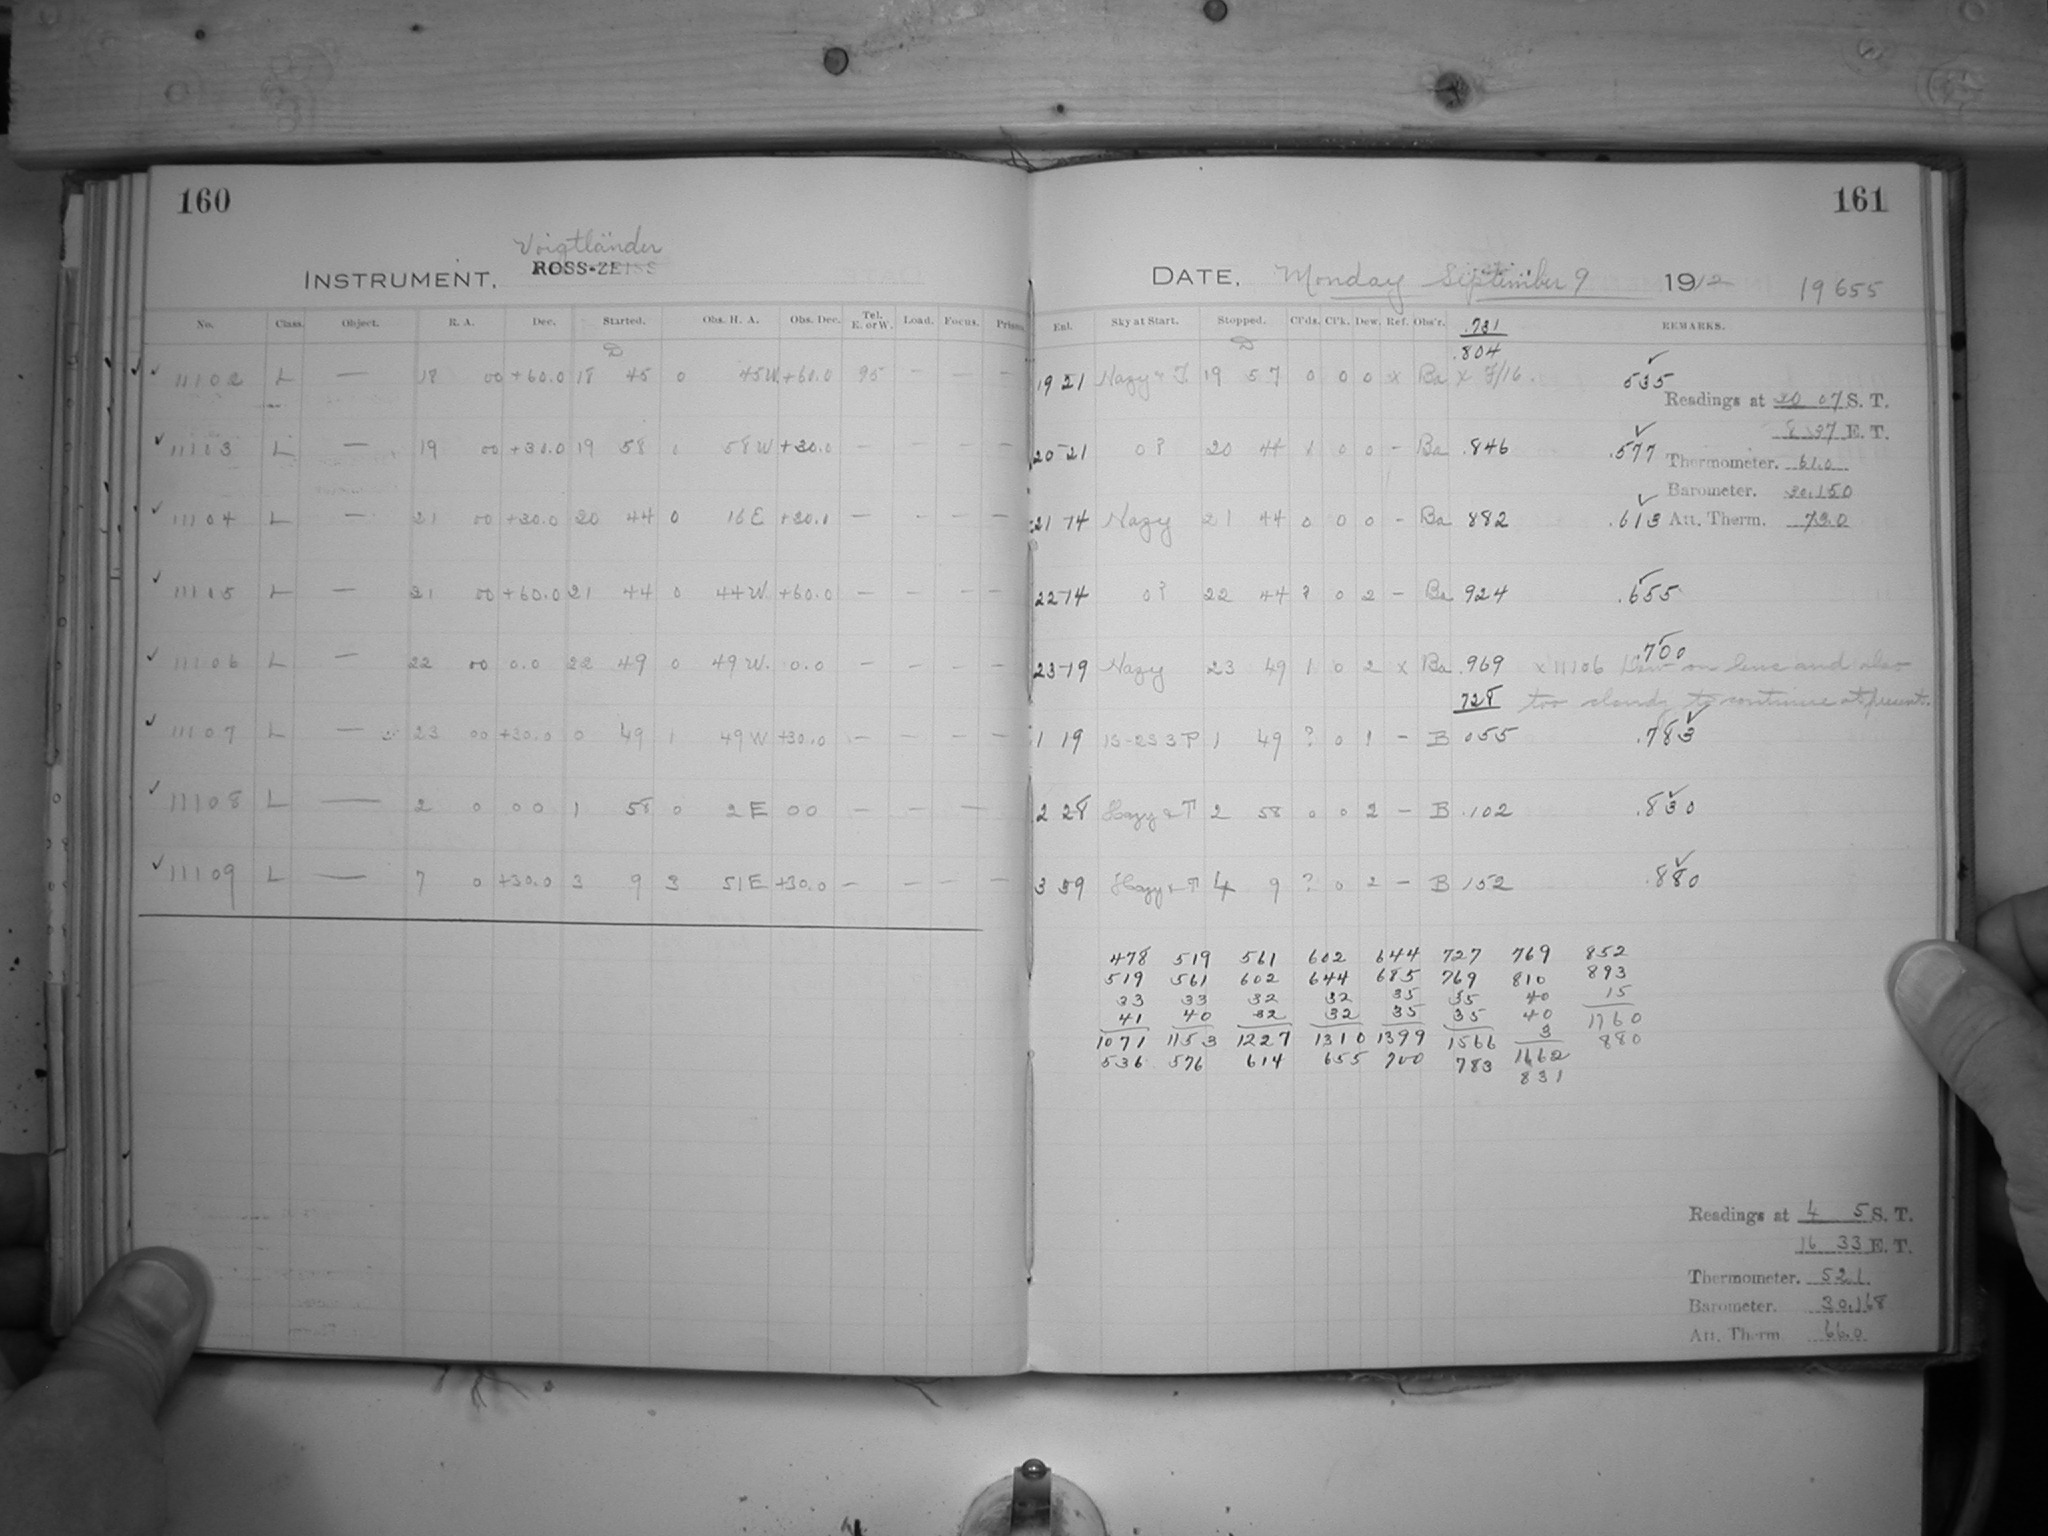 160
161
Voigtländer
INSTRUMENT, ROSS-ZEISS
DATE, Monday September 9 1912 19655
No. Class. Object. R. A. Dec. Started. Obs. H. A. Obs. Dec. Tel. E. or W. Load. Focus. Prisms
Enl. Sky at Start. Stopped. Cl'ds. Cl'k. Dew. Ref. Obs'r. .731 REMARKS.
.804
11102 L — 18 00 +60.0 18 45 0 45W +60.0 95 — — — —
19 21 Hazy & T. 19 57 0 0 0 x Ba x F/16. 535
Readings at 20 07 S. T.
8 37 E. T.
11103 L — 19 00 +30.0 19 58 0 58W +30.0 — — — — —
20 21 20 44 0 0 - Ba .846 .577
Thermometer. 61.0
Barometer. 30.150
11104 L — 21 00 +30.0 20 44 0 16E +30.0 — — — — —
21 14 Hazy 21 44 0 0 0 - Ba 882 .613
Att. Therm. 73.0
11105 L — 21 00 +60.0 21 44 0 44W +60.0 — — — — —
22 14 22 44 ? 0 2 - Ba 924 .655
11106 L — 22 00 0.0 22 49 0 49W. 0.0 — — — — —
23 19 Hazy 23 49 1 0 2 x Ba .969 .700 x 11106 Dew on lens and also
728 too cloudy to continue at present.
11107 L — 23 00 +30.0 0 49 1 49W +30.0 — — — — —
1 19 1 49 ? 0 1 - B 055 .783
11108 L — 2 0 00 1 58 0 2E 00 — — — —
2 28 Hazy & T 2 58 0 0 2 - B .102 .830
11109 L — 7 0 +30.0 3 9 3 51E +30.0 — — — — —
3 39 Hazy & T 4 9 ? 0 2 - B 152 .880
478 519 561 602 644 727 769 852
519 561 602 644 685 769 810 893
33 33 32 32 35 35 40 15
41 40 32 32 35 35 40 1760
1071 1153 1227 1310 1399 1566 3 880
536 576 614 655 700 783 1662
831
Readings at 4 5 S. T.
16 33 E. T.
Thermometer. 52.1
Barometer. 30.168
Att. Therm 66.0